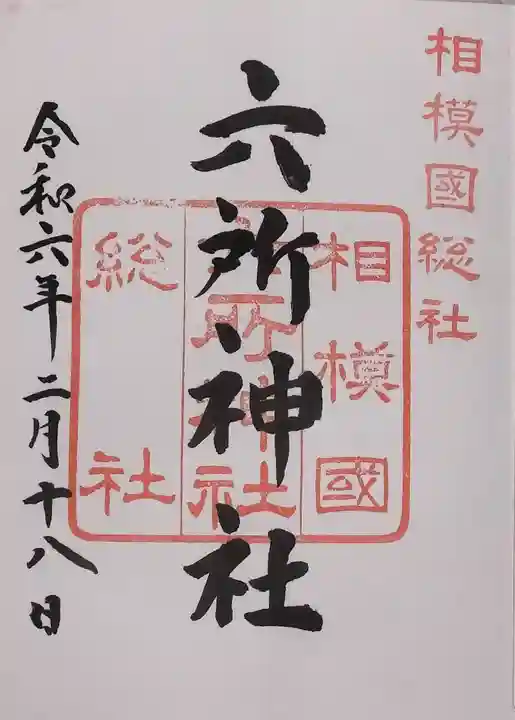 相模國総社
六所神社
相模國
六所神社
総社
令和六年二月十八日